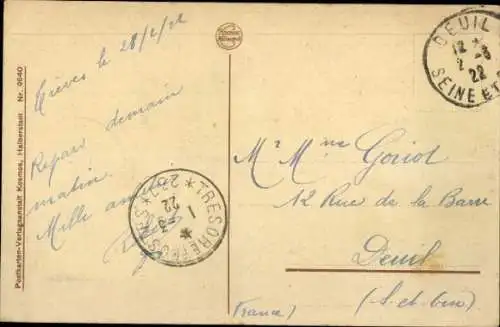 Postkarten-Verlagsanstalt Kosmos, Halberstadt Nr. 9640
Trèves le 28/2/22
Repars demain
matin.
Mille amitiés
TRESOR ET POSTES * 229 *
1 - 3
22
DEUIL
12 *
2 - 3
22
SEINE ET
Mr Mme Goriot
12 Rue de la Barre
Deuil
(S-et-Oise)
(France)